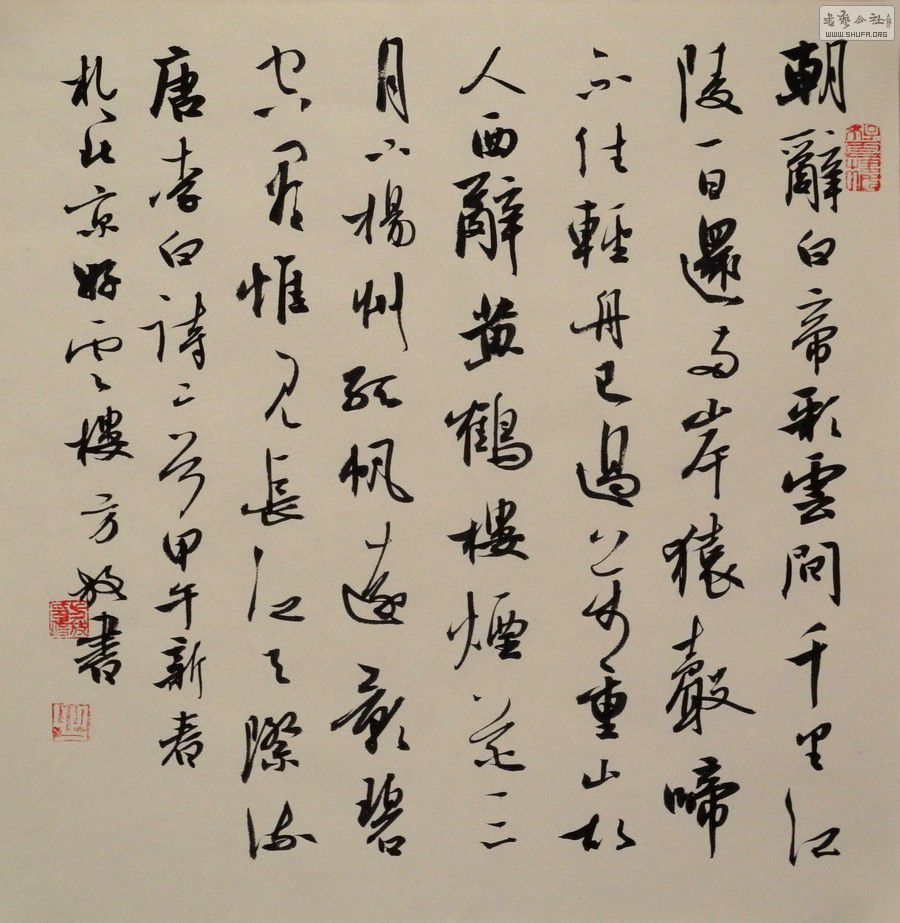 書藝公社
WWW.SHUFA.ORG
朝辭白帝彩雲間千里江
陵一日還兩岸猿聲啼
不住輕舟已過萬重山故
人西辭黃鶴樓煙花三
月下楊州孤帆遠影碧
空盡惟見長江天際流
唐李白詩二首甲午新春
於北京好樓方放書